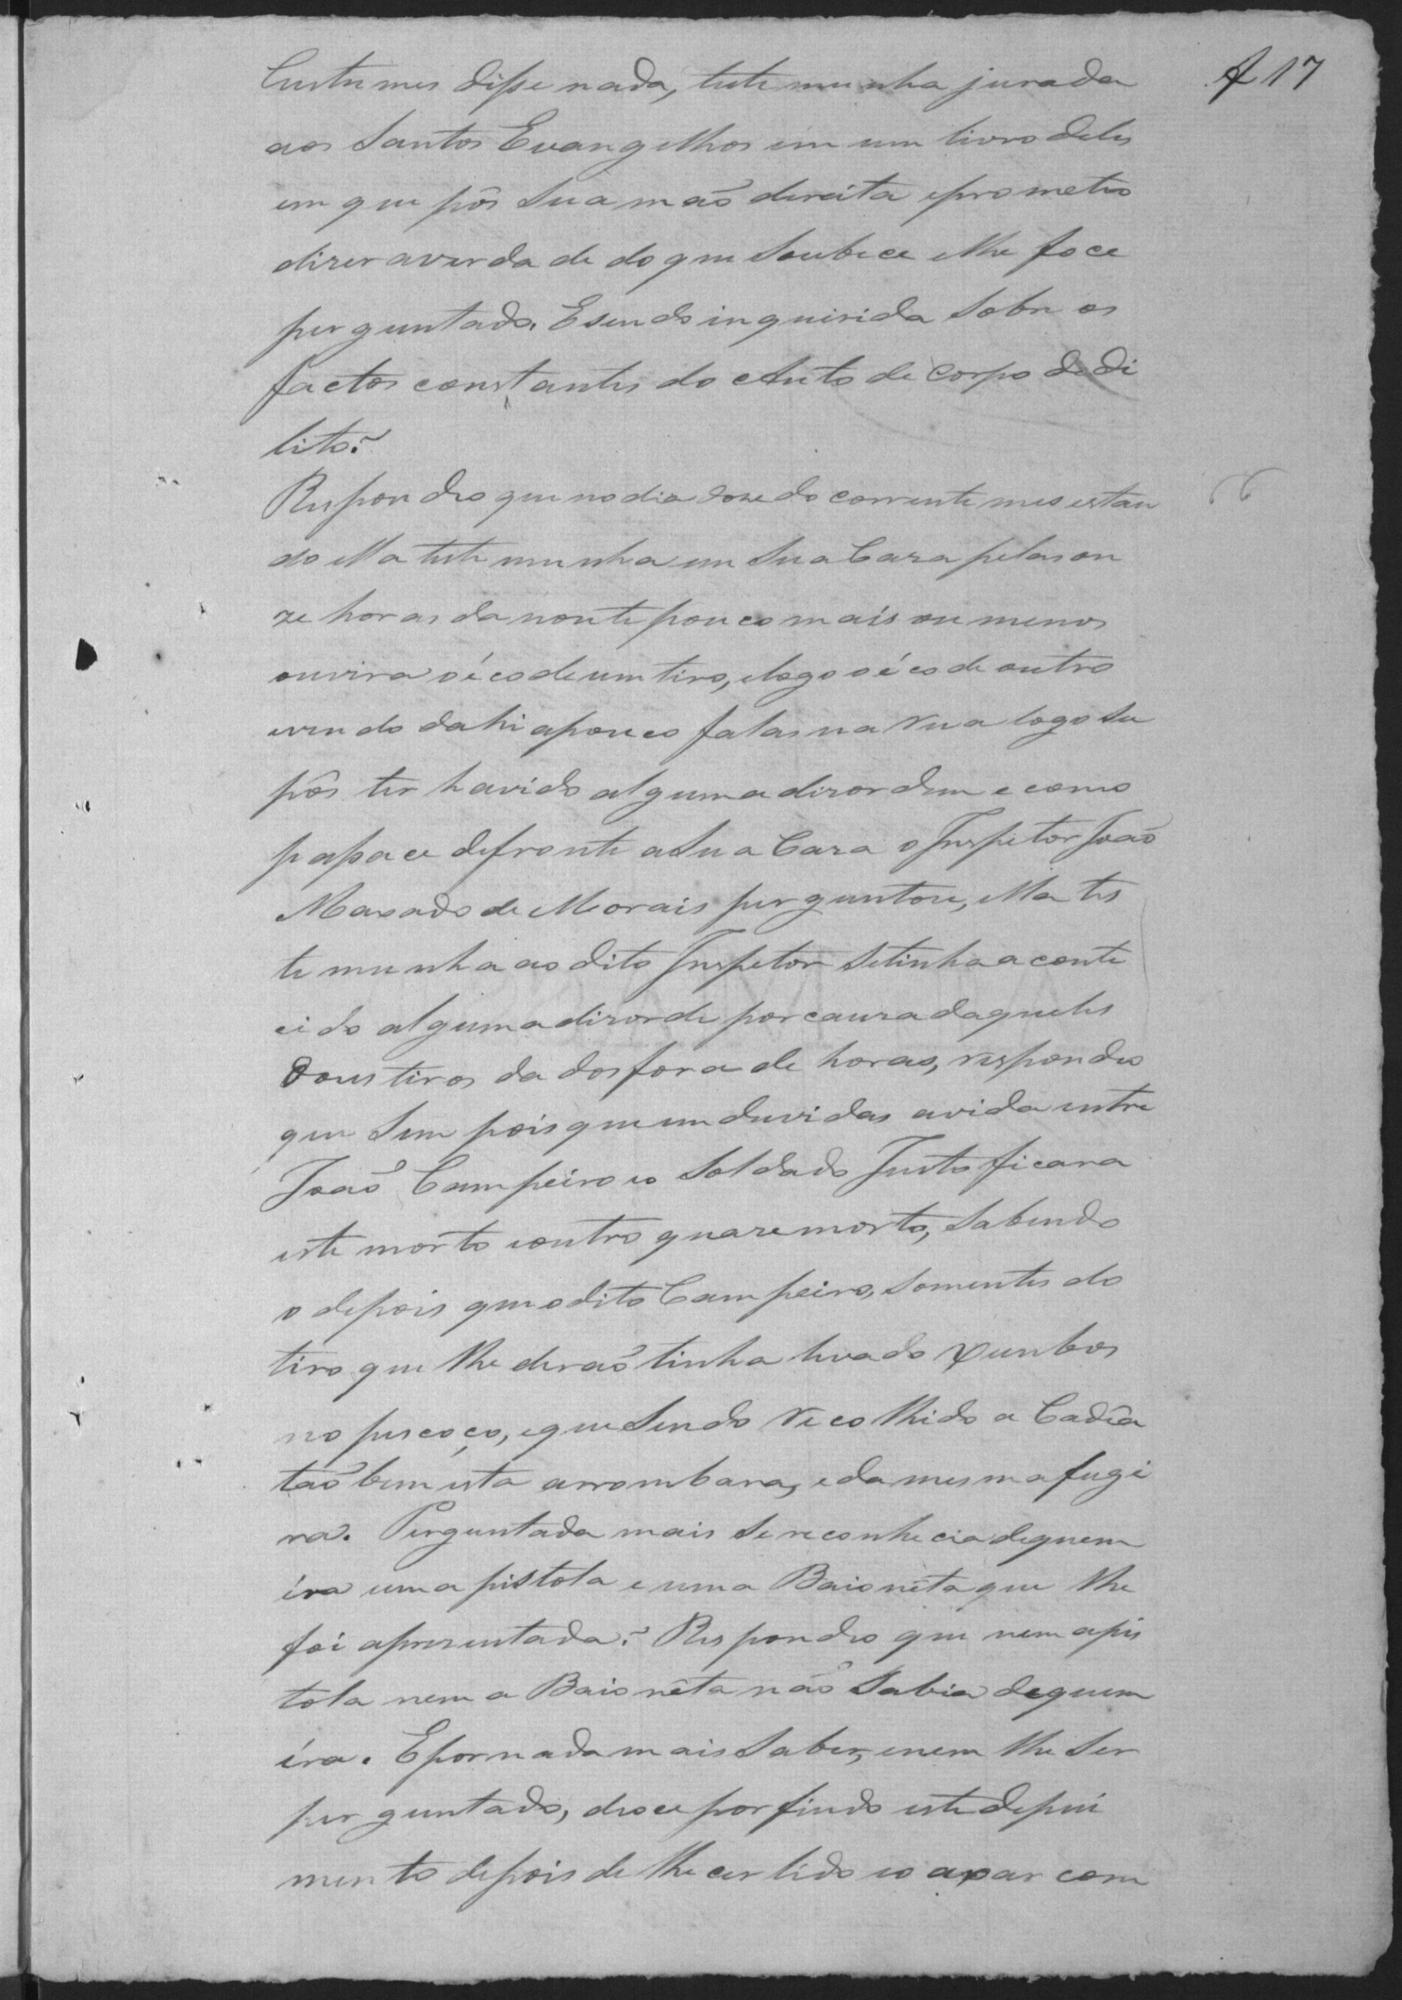 f 17
Custumes disse nada, testemunha jurada
aos Santos Evangelhos em um livro deles
em que pôs sua mão direita eprometeo
dizer averdade doque soubece elhe foce
perguntado. Esendo inquirida sobre os
factos constantes do Auto de Corpo dedi
lito?
Respondeo que nodia doze do corrente mes estan
do ella testemunha em sua Caza pelas on
ze horas da noute pouco mais ou menos
ouvira oéco de um tiro, elogo oéco de outro
evindo dahi apouco falas na rua logo su
pôs ter havido alguma dizordem e como
passace defronte asua Caza o Inspetor João
Maxado de Morais perguntou, ella tes
temunha ao dito Inspetor setinha aconte
cido alguma dizorde por cauza daqueles
dous tiros dados fora de horas, respondeo
que sim pois que em duvidas avida entre
João Campeiro eo Soldado Justo ficara
este morto eoutro quaze morto, sabendo
o depois que odito Campeiro, somentes do
tiro que lhe derão tinha levado xumbos
no pescoço, eque sendo recolhido a Cadêa
tão bem esta arrombara, eda mesma fugi
ra. Perguntada mais se reconhecia dequem
éra uma pistola e uma Baionêta que lhe
foi aprezentada? Respondeo que nem apis
tola nem a Baionêta não sabia dequem
éra. Epor nada mais saber, enem lhe ser
perguntado, deoce por findo este depui
mento depois de lhe cer lido eo axar com